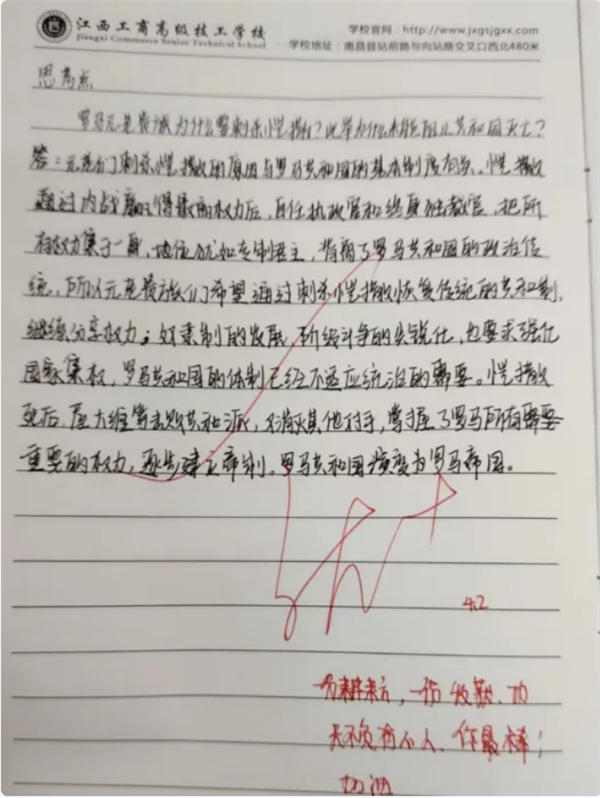 江西工商高级技工学校
Jiangxi Commerce Senior Technical School
学校官网:http://www.jxgsjgxx.com
学校地址:南昌县站前路与向站路交叉口西北480米
思考点
罗马元老贵族为什么要刺杀恺撒?此举为什么未能阻止共和国灭亡?
答:元老们刺杀恺撒的原因与罗马共和国的基本制度有关。恺撒
通过内战赢得最高权力后,自任执政官和终身独裁官,把所
有权力集于一身,地位犹如专制君主,背离了罗马共和国的政治传
统,所以元老贵族们希望通过刺杀恺撒恢复传统的共和制,
继续分享权力;奴隶制的发展,阶级斗争的尖锐化,也要求强化
国家集权,罗马共和国的体制已经不适应统治的需要。恺撒
死后,屋大维击败共和派,又消灭其他对手,掌握了罗马所有
重要的权力,逐步建立帝制。罗马共和国演变为罗马帝国。
4.2
一份耕耘,一份收获,功
夫不负有心人,你最棒!
加油